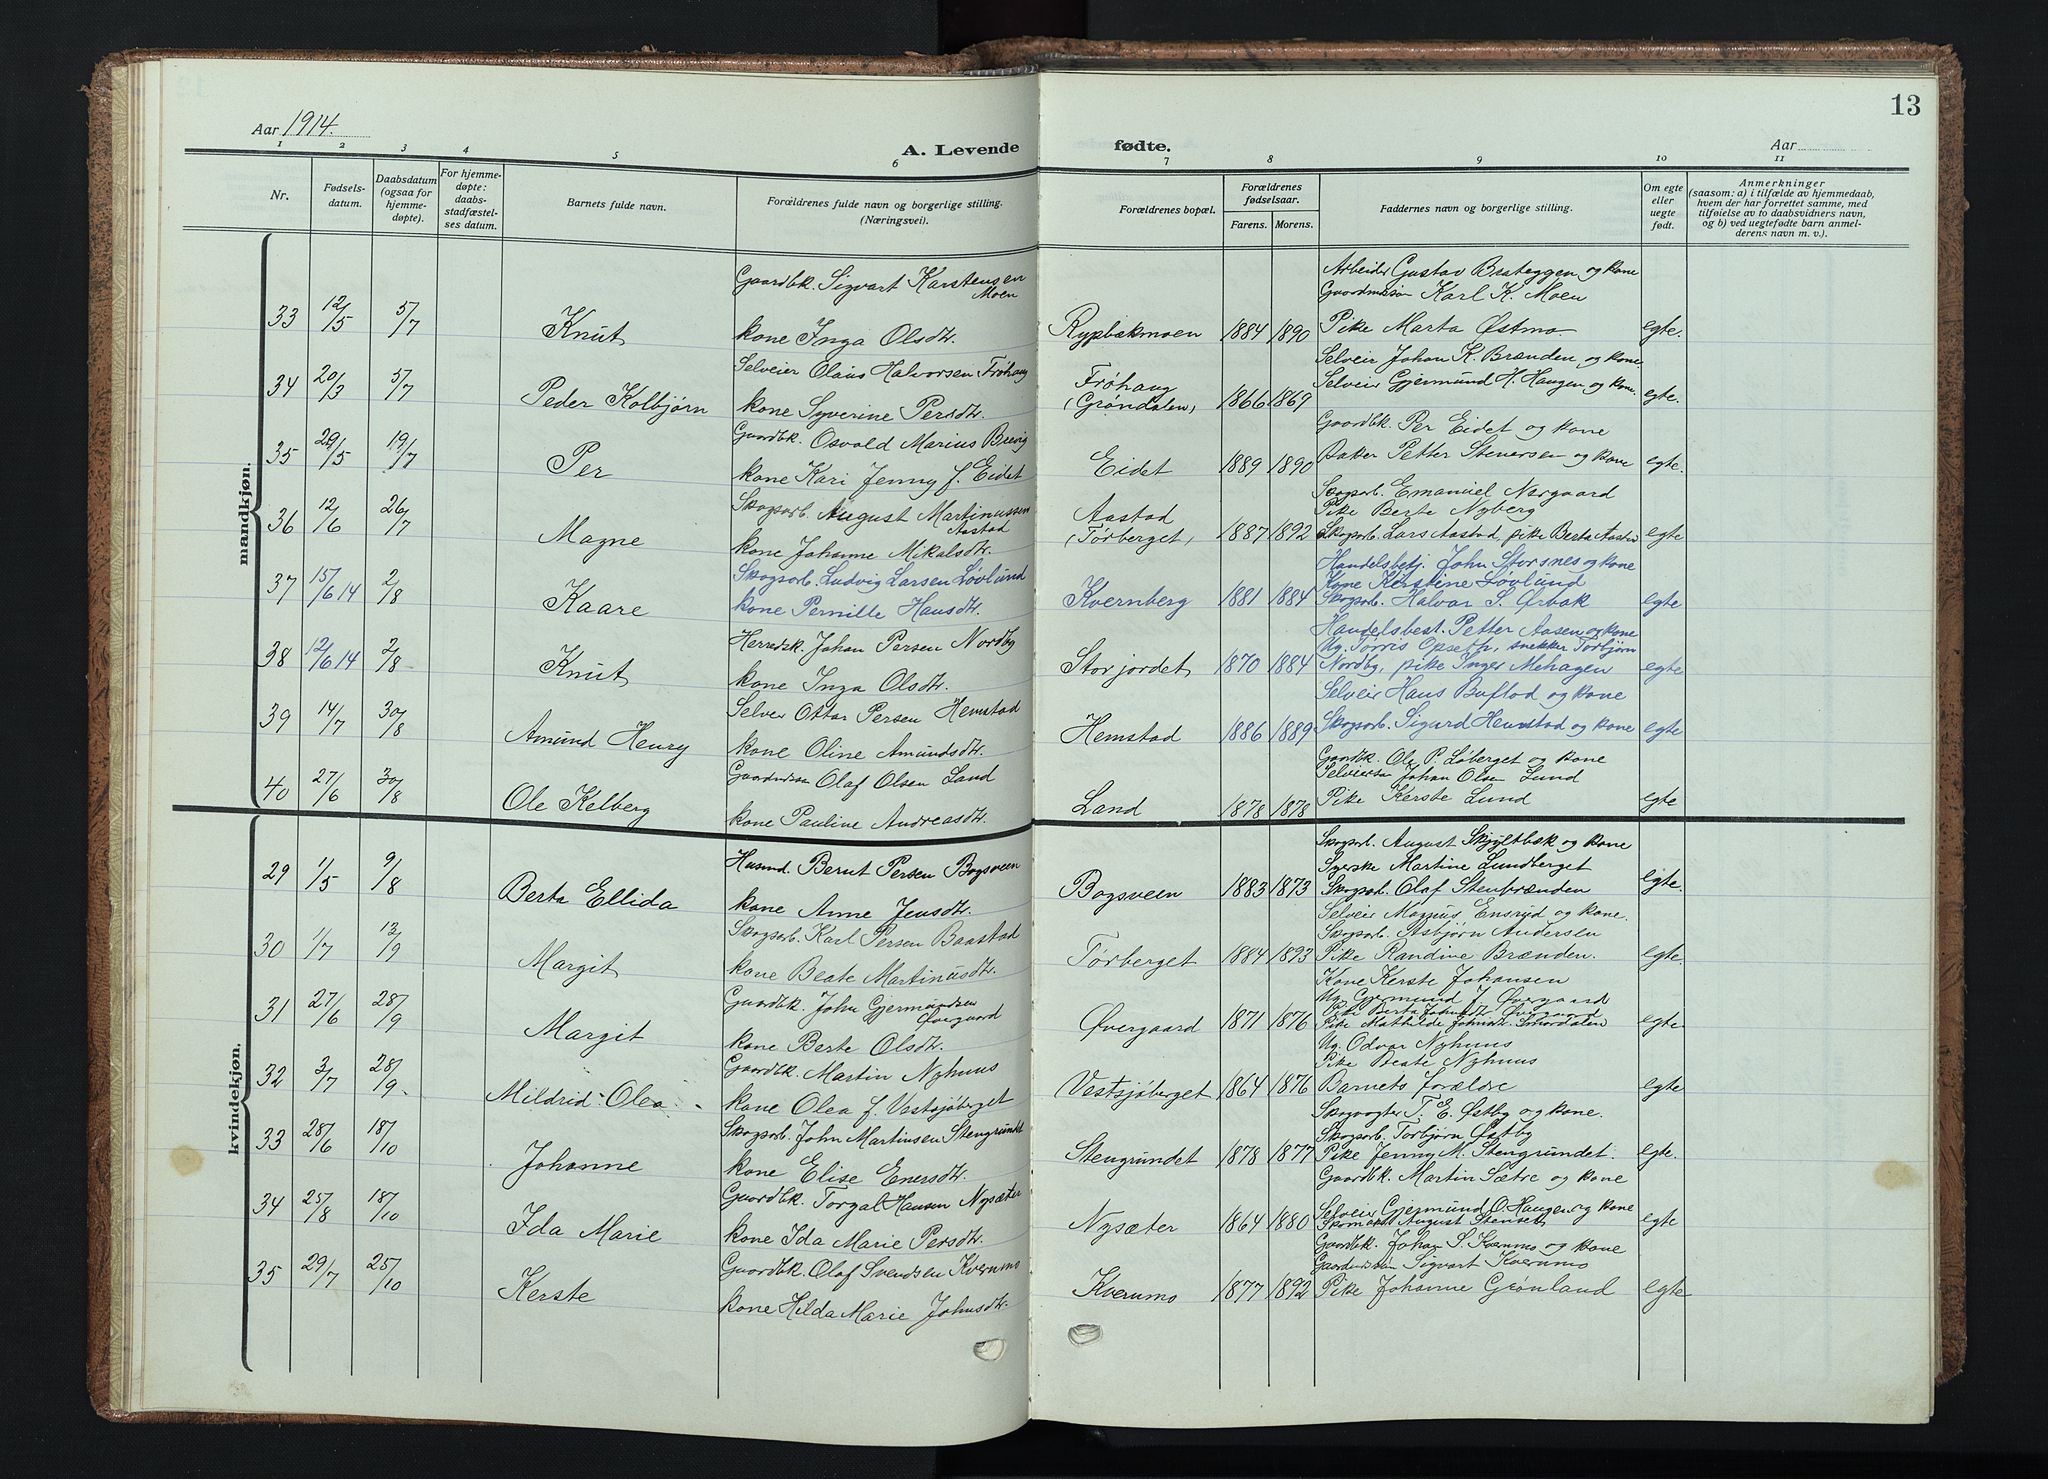 13
Aar 1914.
A. Levende fødte.
Aar
1 2 3 4 5 6 7 8 9 10 11
Nr.
Fødsels-
datum.
Daabsdatum
(ogsaa for
hjemme-
døpte).
For hjemme-
døpte:
daabs-
stadfæstel-
ses datum.
Barnets fulde navn.
Forældrenes fulde navn og borgerlige stilling.
(Næringsvei).
Forældrenes bopæl.
Forældrenes
fødselsaar.
Farens. Morens.
Faddernes navn og borgerlige stilling.
Om egte
eller
uegte
født.
Anmerkninger
(saasom: a) i tilfælde av hjemmedaab,
hvem der har forrettet samme, med
tilføielse av to daabsvidners navn,
og b) ved uegtefødte barn anmel-
derens navn m. v.).
mandkjøn.
Gaardbk. Sigvart Karstensen
Moen
Arbeider Gustav Brateggen og kone
Gaardmandssøn Karl K. Moen
33 12/5 5/7 Knut kone Inga Olsdtr. Rypbækmoen 1884 1890 Pike Marta Østmo egte.
Selveier Olaus Halvorsen Frøhaug
Selveier Johan K. Brænden og kone
34 20/3 5/7 Peder Kolbjørn kone Syverine Persdtr. Frøhaug (Grøndalen) 1866 1869 Selveier Gjermund H. Haugen og kone. egte.
Gaardbk. Osvald Marius Brevig
Gaardbk. Per Eidet og kone
35 29/5 19/7 Per kone Kari Jenny f. Eidet Eidet 1889 1890 Baker Petter Stenersen og kone egte.
Skogsarb. August Martinussen
Aastad
Skogsarb. Emanuel Nærgaard
Pike Berte Nyberg
36 12/6 26/7 Magne kone Johanne Mikalsdtr. Aastad (Tørberget) 1887 1892 Skogsarb. Lars Aastad, pike Berta Aastad egte
Skogsarb. Ludvig Larsen Løvlund
Handelsbetj. John Storsnes og kone
Kone Kerstine Løvlund
37 15/6 14 2/8 Kaare kone Pernille Hansdtr. Kvernberg 1881 1884 Skogsarb. Halvar S. Ørbak egte
Herredsk. Johan Persen Nordby
Handelsbest. Petter Aasen og kone
Ug. Torris Opseth, snekker Torbjørn
38 12/6 14 2/8 Knut kone Inga Olsdtr. Storjordet 1870 1884 Nordby, pike Inger Mehagen egte
Selveier Ottar Persen Hemstad
Selveier Hans Buflod og kone
39 14/7 30/8 Amund Henry kone Oline Amundsdtr. Hemstad 1886 1889 Skogsarb. Sigurd Hemstad og kone egte
Olaf Olsen Land
Gaardbk. Ole P. Løberget og kone
Selveiersøn Johan Olsen Lund
40 27/6 30/8 Ole Kelberg kone Pauline Andreasdtr. Land 1878 1878 Pike Kerste Lund egte
kvindekjøn.
Husmd. Bernt Persen Bogsveen
Skogsarb. August Skjyltbæk og kone
Syerske Martine Lundberget
29 1/5 9/8 Berta Ellida kone Anne Jensdtr. Bogsveen 1883 1873 Skogsarb. Olaf Stenbrænden egte.
Skogsarb. Karl Persen Baastad
Selveier Magnus Ensrud og kone.
Skogsarb. Asbjørn Andersen
30 1/7 13/9 Margit kone Beate Martinusdtr. Tørberget 1884 1893 Pike Randine Brænden. egte.
Gaardbk. John Gjermundsen
Øvergaard
Kone Kerste Johansen
Ug. Gjermund J. Øvergaard
Pike Berta Johnsdtr. Øvergaard
31 27/6 28/9 Margit kone Berte Olsdtr. Øvergaard 1871 1876 Pike Mathilde Johnsdtr. egte.
Gaardbk. Martin Nyhuus
Ug. Odvar Nyhuus
Pike Beate Nyhuus
32 3/7 28/9 Mildrid Olea kone Olea f. Vestsjøberget Vestsjøberget 1864 1876 Barnets Forældre egte
Skogsarb. John Martinsen Stengrundet
Skogvogter T. E. Østby og kone.
Skogsarb. Torbjørn Østby
33 28/6 18/10 Johanne kone Elise Enersdtr. Stengrundet 1878 1877 Pike Jenny M. Stengrundet. egte.
Gaardbk. Torgal Hansen Nysæter
Gaardbk. Martin Sætre og kone
Selveier Gjermund O. Haugen og kone
34 25/8 18/10 Ida Marie kone Ida Marie Persdtr. Nysæter 1864 1880 Skomaker August Stenset egte
Gaardbk. Olaf Svendsen Kvernmo
Gaardbk. Johan S. Kvernmo og kone
Sigvart Kvernmo
35 29/7 25/10 Kerste kone Hilda Marie Johnsdtr. Kvernmo 1877 1892 Pike Johanne Grønland egte